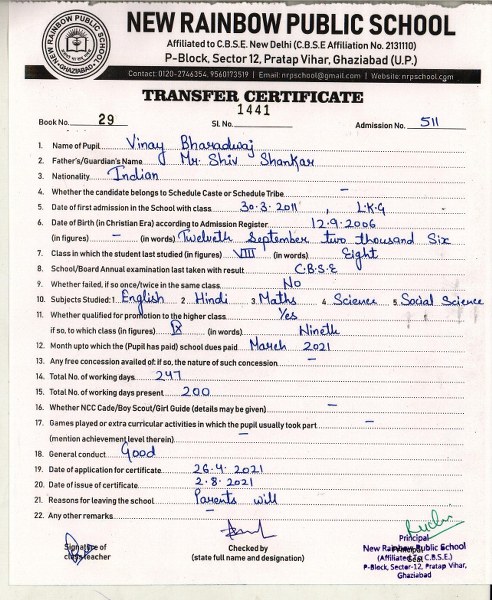 NEW RAINBOW PUBLIC SCHOOL
Affiliated to C.B.S.E. New Delhi (C.B.S.E Affiliation No. 2131110)
P-Block, Sector 12, Pratap Vihar, Ghaziabad (U.P.)
Contact: 0120-2746354, 9560173519 | Email: nrpschool@gmail.com | Website: nrpschool.com
TRANSFER CERTIFICATE
1441
Book No. 29 Sl. No. Admission No. 511
1. Name of Pupil Vinay Bharadwaj
2. Father's/Guardian's Name Mr. Shiv Shankar
3. Nationality Indian
4. Whether the candidate belongs to Schedule Caste or Schedule Tribe –
5. Date of first admission in the School with class 30.3.2011, L.K.G
6. Date of Birth (in Christian Era) according to Admission Register 12.9.2006
(in figures) – (in words) Twelveth September two thousand Six
7. Class in which the student last studied (in figures) VIII (in words) Eight
8. School/Board Annual examination last taken with result C.B.S.E
9. Whether failed, if so once/twice in the same class No
10. Subjects Studied: 1. English 2. Hindi 3. Maths 4. Science 5. Social Science
11. Whether qualified for promotion to the higher class Yes
if so, to which class (in figures) IX (in words) Nineth
12. Month upto which the (Pupil has paid) school dues paid March 2021
13. Any free concession availed of: if so, the nature of such concession –
14. Total No. of working days 247
15. Total No. of working days present 200
16. Whether NCC Cade/Boy Scout/Girl Guide (details may be given) –
17. Games played or extra curricular activities in which the pupil usually took part –
(mention achievement level therein) –
18. General conduct Good
19. Date of application for certificate 26.4.2021
20. Date of issue of certificate 2.8.2021
21. Reasons for leaving the school Parents will
22. Any other remarks –
Signature of Checked by Principal
class teacher (state full name and designation) New Rainbow Public School
(Affiliated To C.B.S.E.)
P-Block, Sector-12, Pratap Vihar,
Ghaziabad